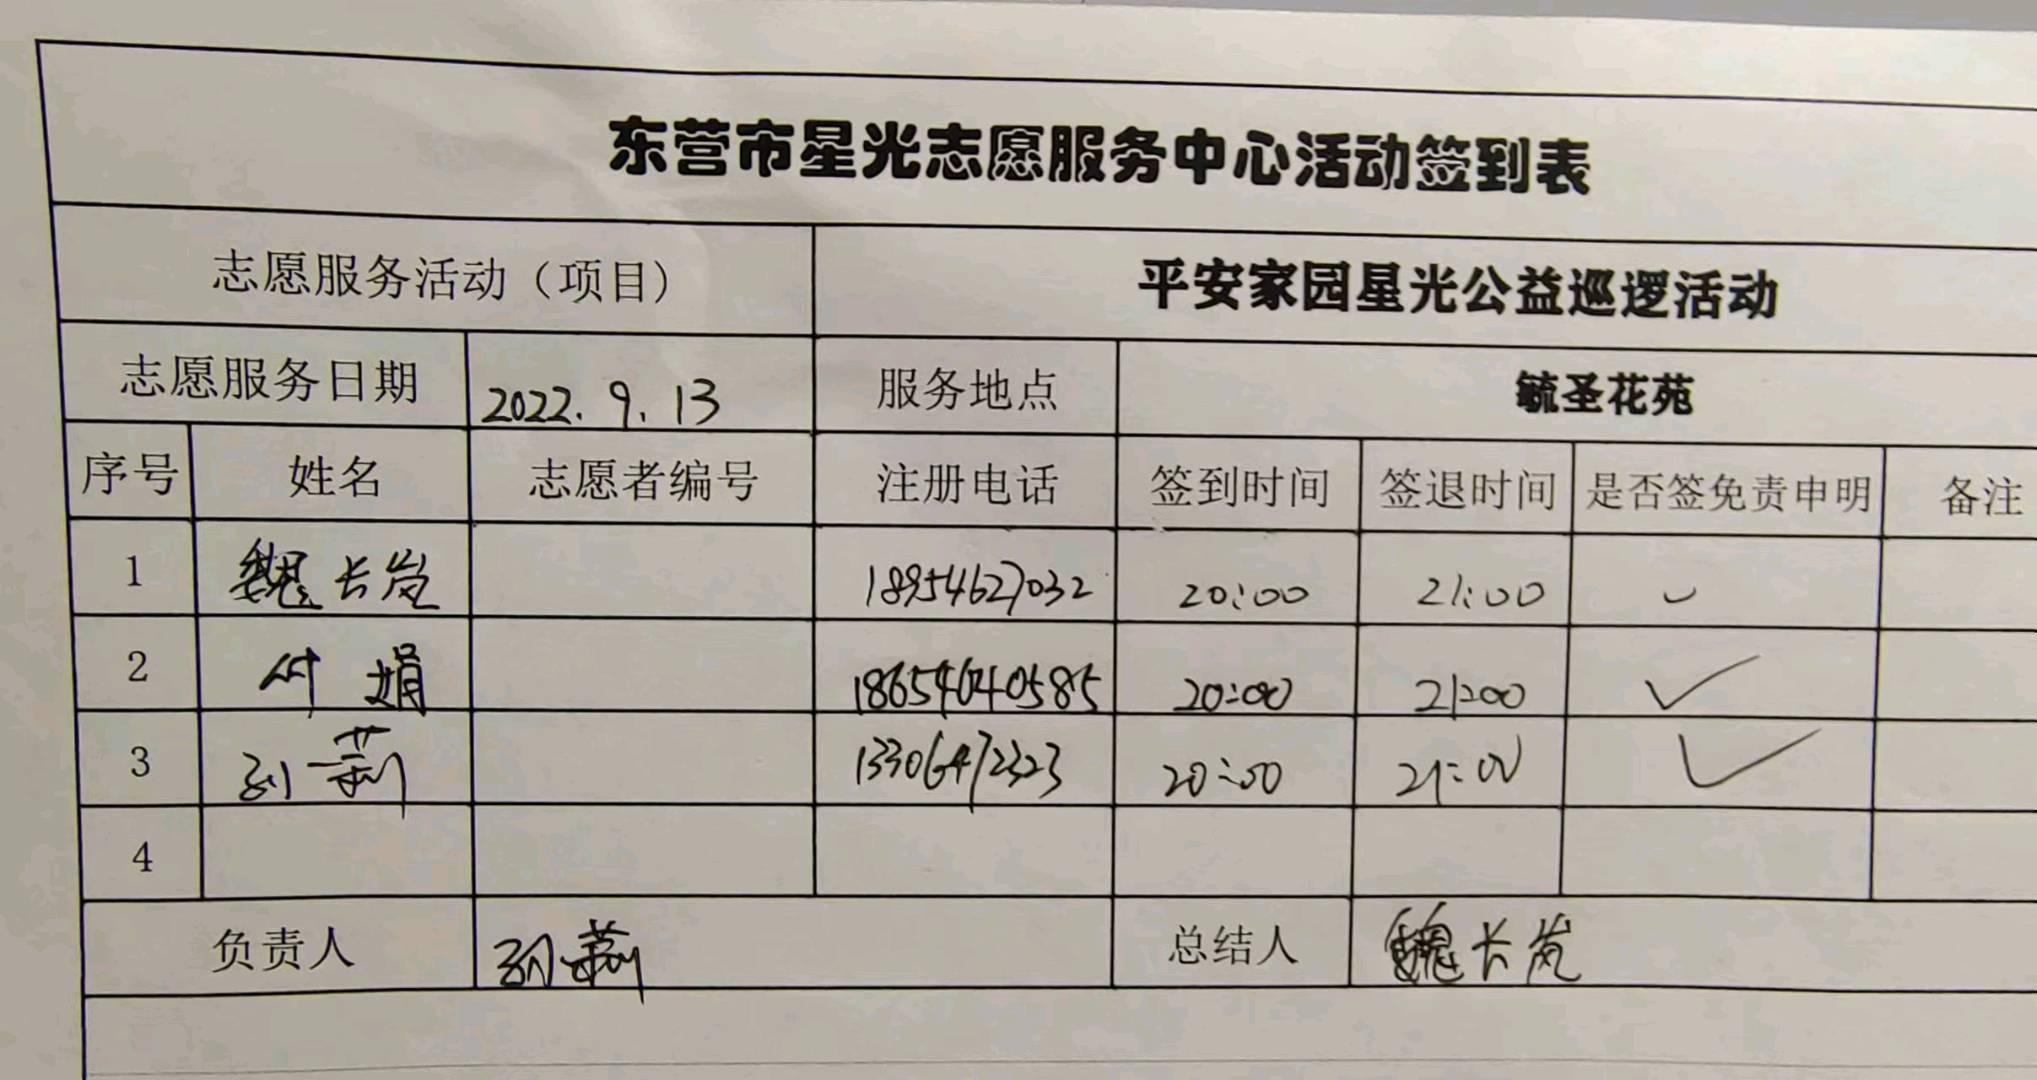 东营市星光志愿服务中心活动签到表
志愿服务活动（项目） 平安家园星光公益巡逻活动
志愿服务日期 2022.9.13 服务地点 毓圣花苑
序号 姓名 志愿者编号 注册电话 签到时间 签退时间 是否签免责申明 备注
1 魏长岚 18954627032 20:00 21:00 ✓
2 付娟 18654640585 20:00 21:00 ✓
3 孙莉 13306472323 20:00 21:00 ✓
4
负责人 孙莉 总结人 魏长岚